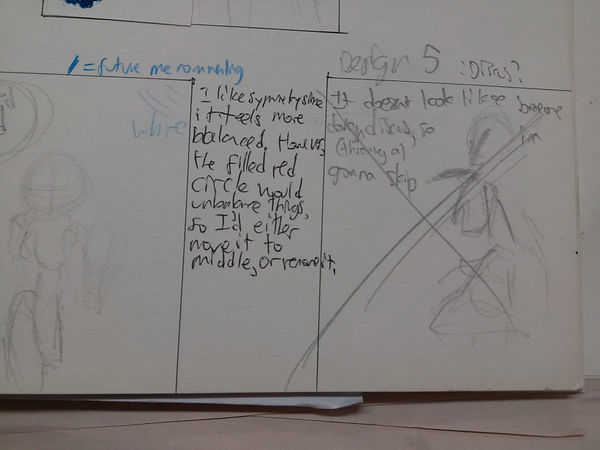 / = future me commenting
Design 5 : Discus?
white
I like symmetry since
it feels more
balanced. However,
the filled red
circle would
unbalance things,
so I'd either
move it to
middle, or remove it.
It doesnt look like someone
doing discus, so I'm
(throwing a)
gonna skip